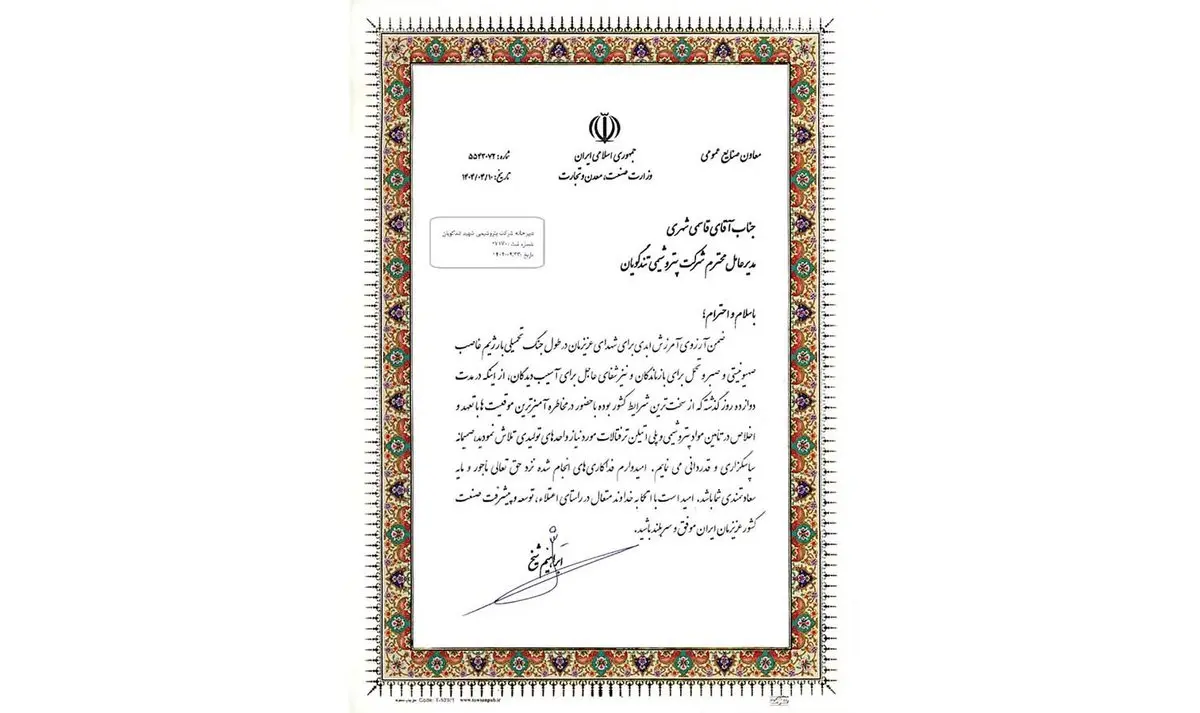 جمهوری اسلامی ایران
وزارت صنعت، معدن و تجارت
معاون صنایع عمومی
شماره: ۵۵۴۳۰۷۲
تاریخ: ۱۴۰۴/۰۴/۱۰
دبیرخانه شرکت پتروشیمی شهید تندگویان
شماره ثبت:
تاریخ:
جناب آقای قاسمی شهری
مدیرعامل محترم شرکت پتروشیمی تندگویان
باسلام و احترام؛
ضمن آرزوی آمرزش ابدی برای شهدای عزیزمان در طول جنگ تحمیلی با رژیم غاصب
صهیونیتی و صبر و تحمل برای بازماندگان و نیز شفای عاجل برای آسیب دیدگان، از اینکه در مدت
دوازده روز گذشته که از سخت‌ترین شرایط کشور بوده با حضور در مخاطره آمیزترین موقعیت ها با تعهد و
اخلاص در تأمین مواد پتروشیمی و پلی اتیلن ترفتالات مورد نیاز واحدهای تولیدی تلاش نمودید، صمیمانه
سپاسگزاری و قدردانی می نمایم. امیدوارم فداکاری‌های انجام شده نزد حق تعالی مأجور و مایه
سعادتمندی شما باشد. امید است با اتکا به خداوند متعال در راستای اعتلاء، توسعه و پیشرفت صنعت
کشور عزیزمان ایران موفق و سربلند باشید.
ابراهیم شیخ